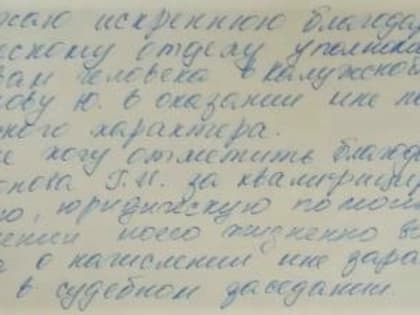 жаю искреннюю благода
ескому отделу уполно
вам человека в Калужской
ову Ю. в оказании мне по
ного характера.
е хочу отметить благод
онова Г.И. за квалифици
ю, юридическую помощ
ении моего жизненно в
а о начислении мне зара
в судебном заседании.